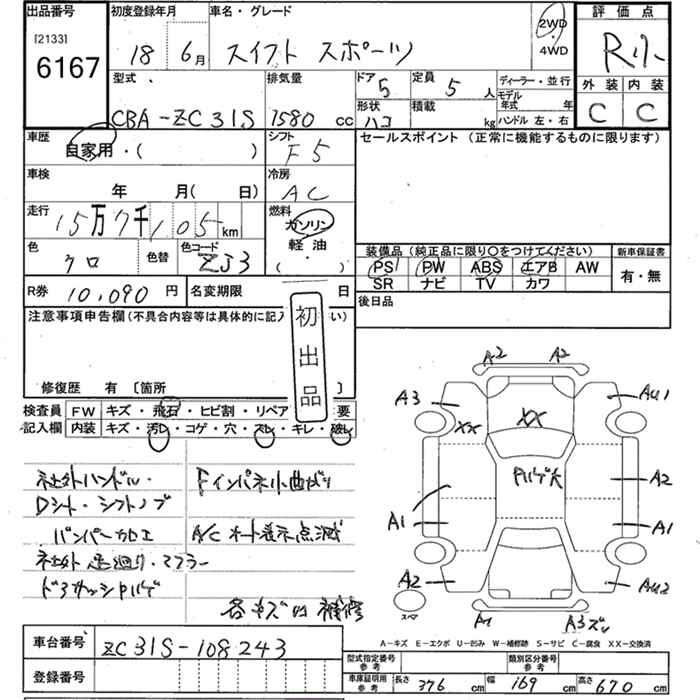 出品番号
[2133]
6167
初度登録年月
18 6月
車名・グレード
スイフト スポーツ
2WD
・
4WD
評価点
Rリ
外装 内装
C C
型式
CBA-ZC31S
排気量
1580 cc
ドア 5
定員 5 人
ディーラー・並行
形状 ハコ
積載 kg
モデル年式 年
ハンドル 左・右
車歴
自家用・( )
シフト
F5
セールスポイント (正常に機能するものに限ります)
車検
年 月( 日)
冷房
AC
走行
15万7千105km
燃料
ガソリン
軽油
・
( )
色
クロ
色替
色コード
ZJ3
装備品 (純正品に限り○をつけてください)
新車保証書
PS PW ABS エアB AW
有・無
SR ナビ TV カワ
R券 10,090 円
名変期限 日
後日品
注意事項申告欄(不具合内容等は具体的に記入 い)
初出品
修復歴 有 〔箇所 〕
検査員
記入欄
FW キズ・飛石・ヒビ割・リペア 要
内装 キズ・汚レ・コゲ・穴・スレ・キレ・破レ
社外ハンドル・
Dシート・シフトノブ
バンパー加工
社外 足廻り・マフラー
ドアサッシPハゲ
Fインパネ小曲がり
A/C オート表示点滅
各キズ凹補修
A2 A2
A3 AU1
XX XX
Pハゲ大
A2
A1 A1
A2 AU2
スペア
A1 A3ズレ
A-キズ E-エクボ U-凹み W-補修跡 S-サビ C-腐食 XX-交換済
車台番号 ZC31S-108243
登録番号
型式指定番号
参考
類別区分番号
参考
車庫証明用
参考
長さ 376 cm 幅 169 cm 高さ 670 cm